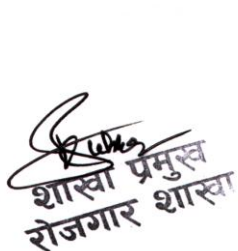 शाखा प्रमुख
रोजगार शाखा